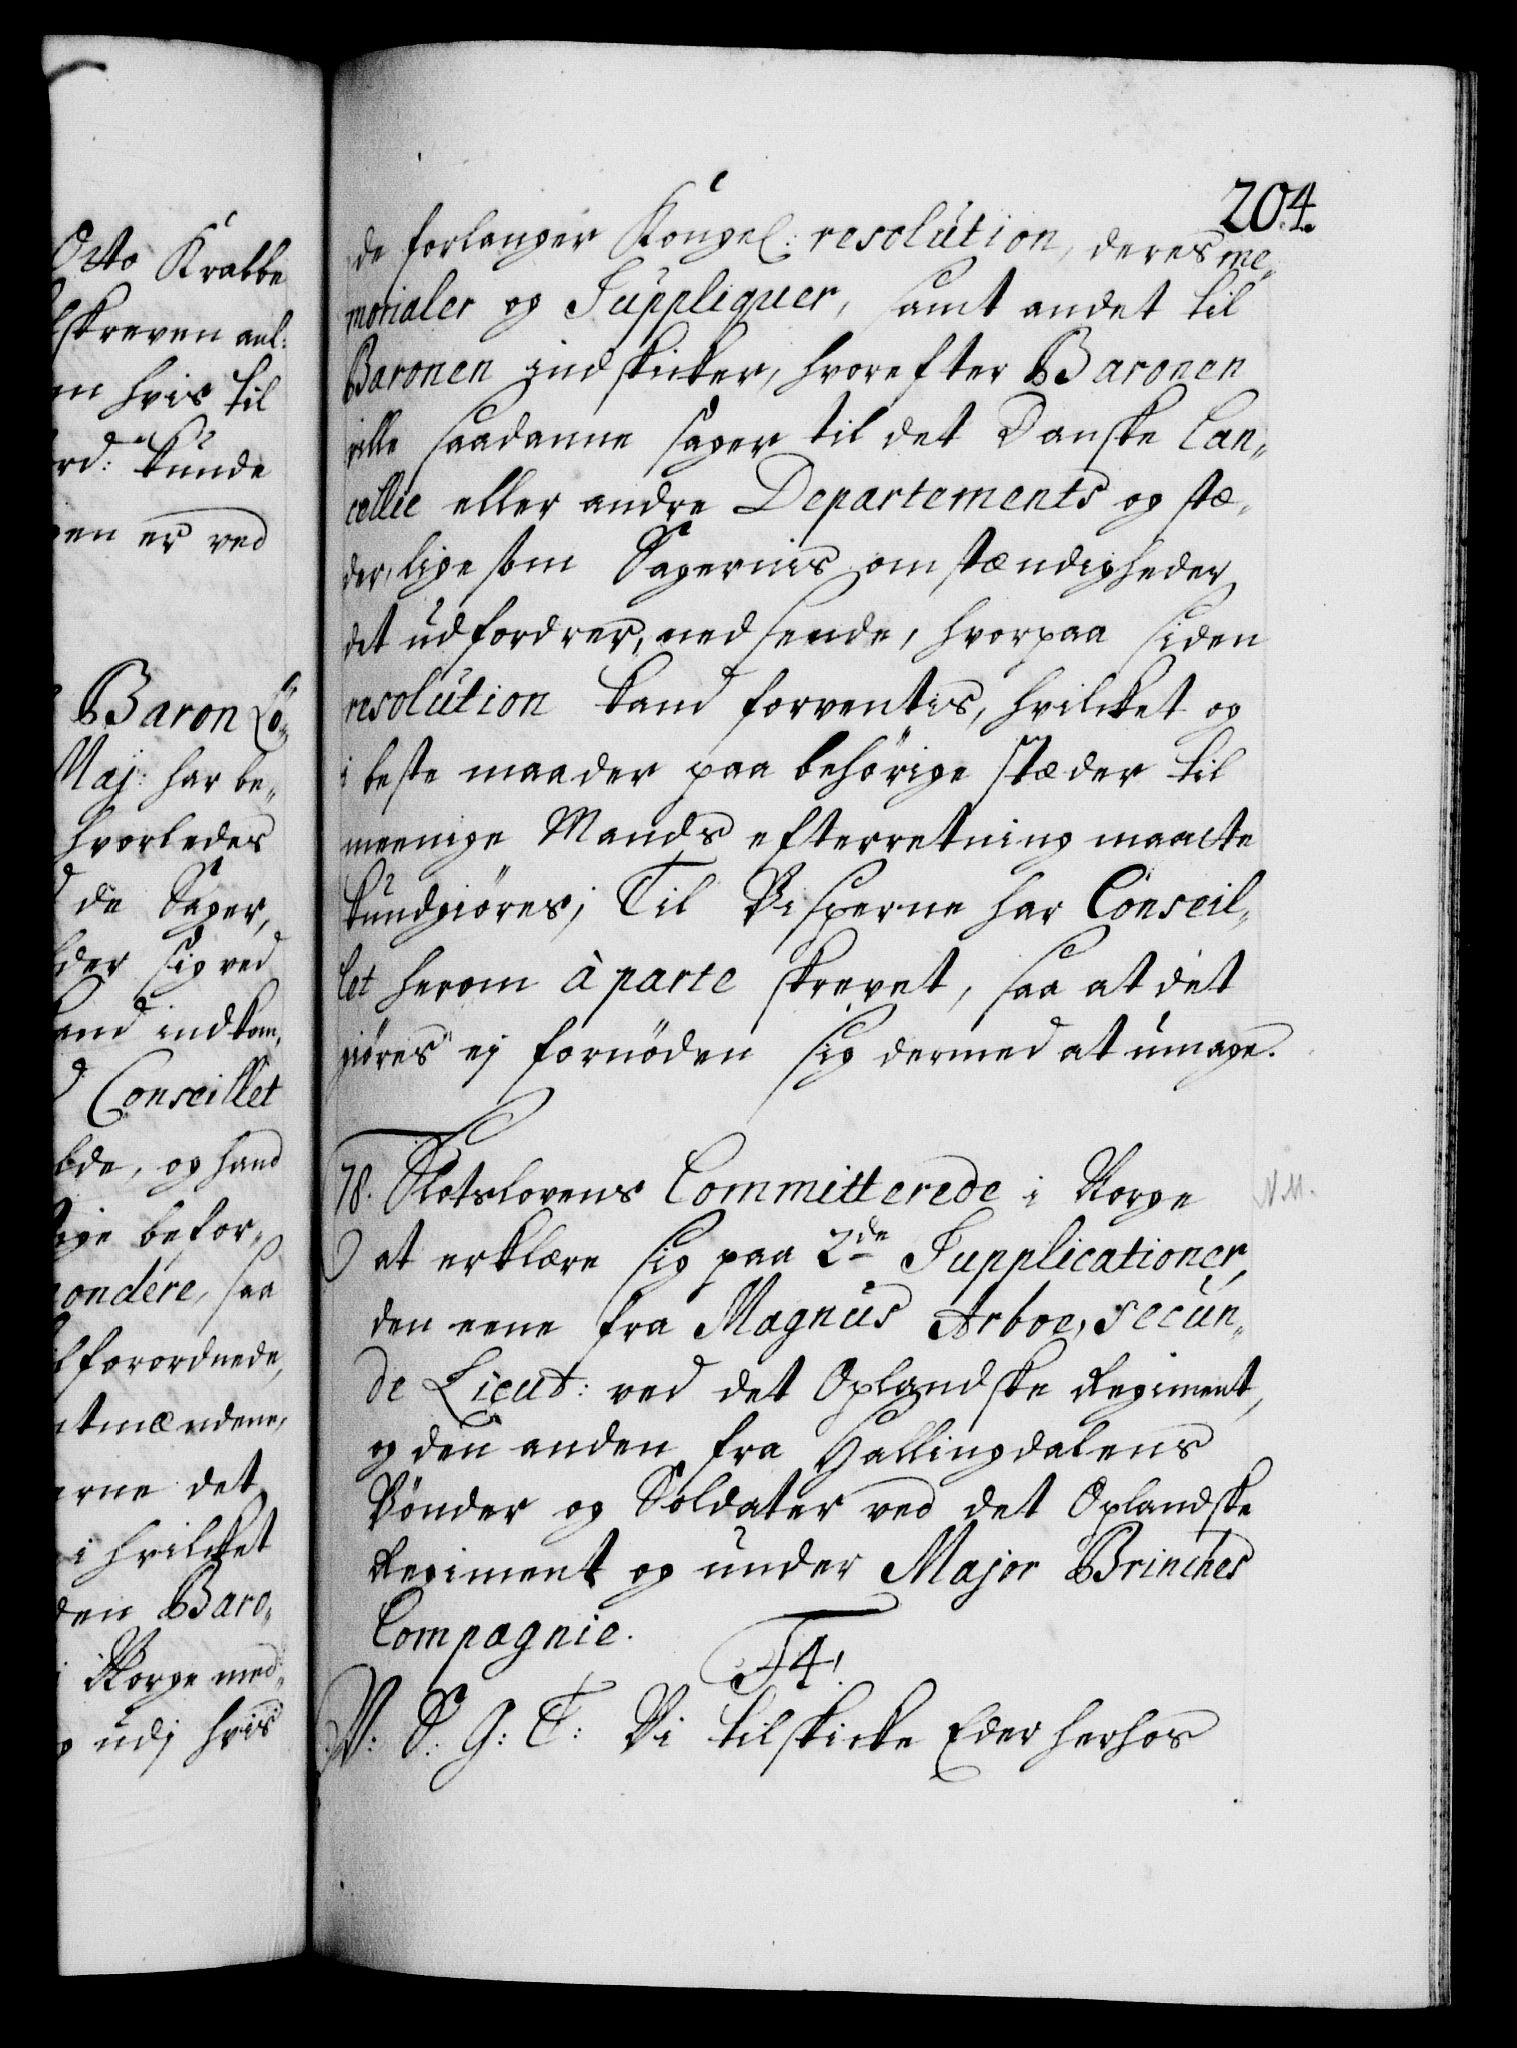 Otto Krabbe
skreven anl:
hvis til
kunde
er ved
Baron Lö-
Maj: har be-
hvorledes
de Sager,
sig ved
indkom-
Conseillet
og hand
befor-
pondére, saa
forordnede,
det
i hvilket
den Baro-
i Norge med-
udj hvis
204.
de forlanger Kongel: resolution, deres me-
morialer og Suppliquer, samt andet til
Baronen indskicker, hvorefter Baronen
ville saadanne sager til det Danske Can-
cellie eller andre Departements og stæ-
der, lige som Sagernis omstændigheder
det udfordrer, nedsende, hvorpaa siden
resolution kand forventis, hvilcket og
i beste maader paa behörige stæder til
meenige Mands efterretning maatte
kundgiöres; Til Bisperne har Conseil-
let herom à parte skrevet, saa at det
giöres ej fornöden sig dermed at umage.
78. Slotslovens Committerede i Norge
N.M.
at erklære sig paa 2de Supplicationer,
den eene fra Magnus Arboe, secun-
de Lieut: ved det Oplandske Regiment,
og den anden fra Hallingdalens
Bönder og Soldater ved det Oplandske
Regiment og under Major Brinches
Compagnie.
F4!
V: S: G: T: Vi tilskicke Eder herhos